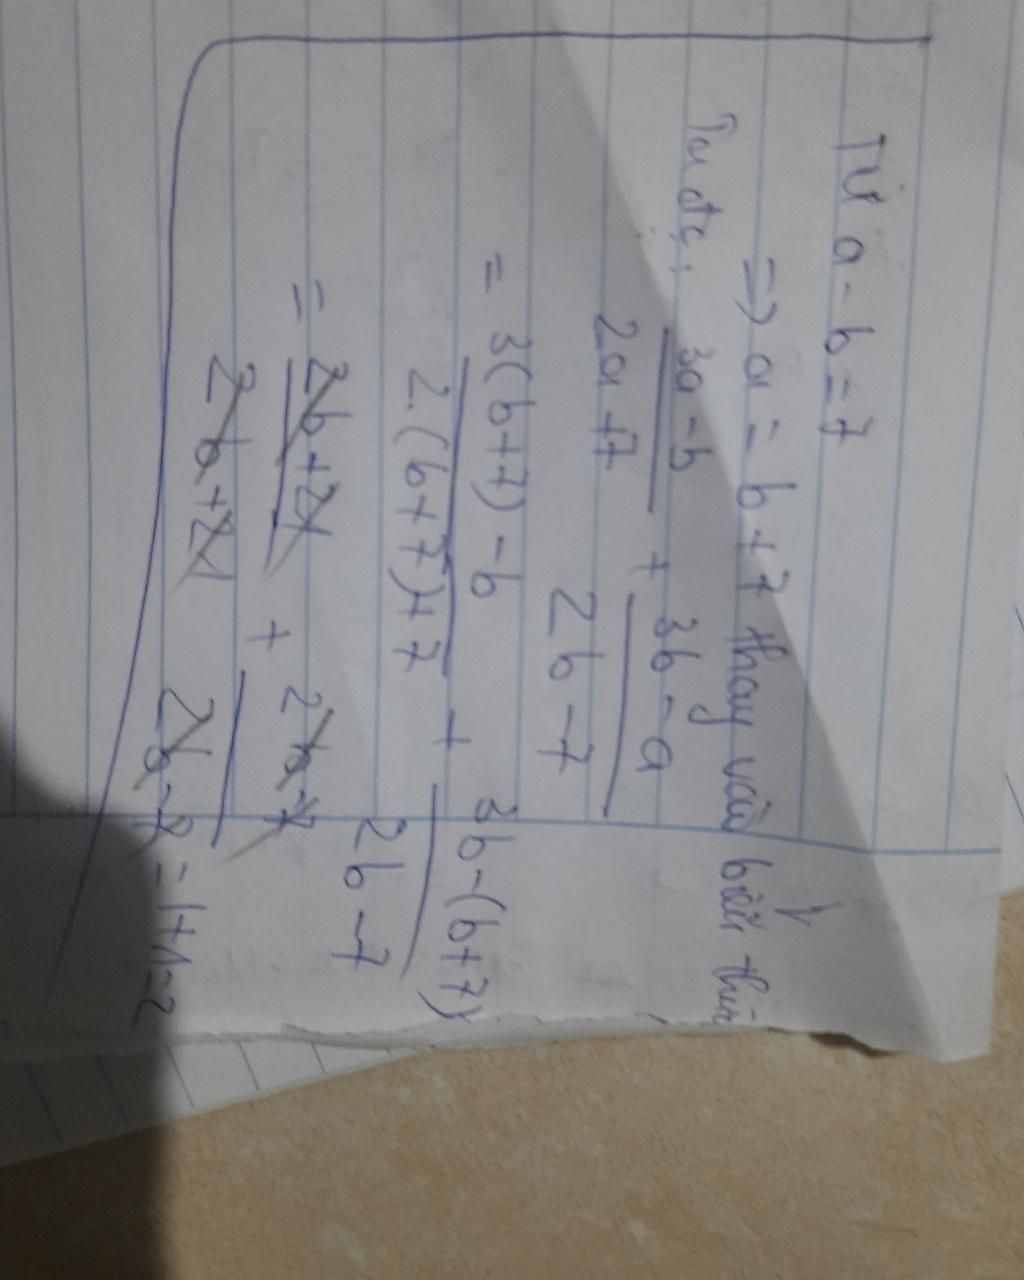 Từ a - b = 7
=> a = b + 7 thay vào biểu thức
Ta đc: (3a - b)/(2a + 7) + (3b - a)/(2b - 7)
= (3(b+7) - b)/(2.(b+7)+7) + (3b - (b+7))/(2b - 7)
= (2b+21)/(2b+21) + (2b-7)/(2b-7) = 1+1=2